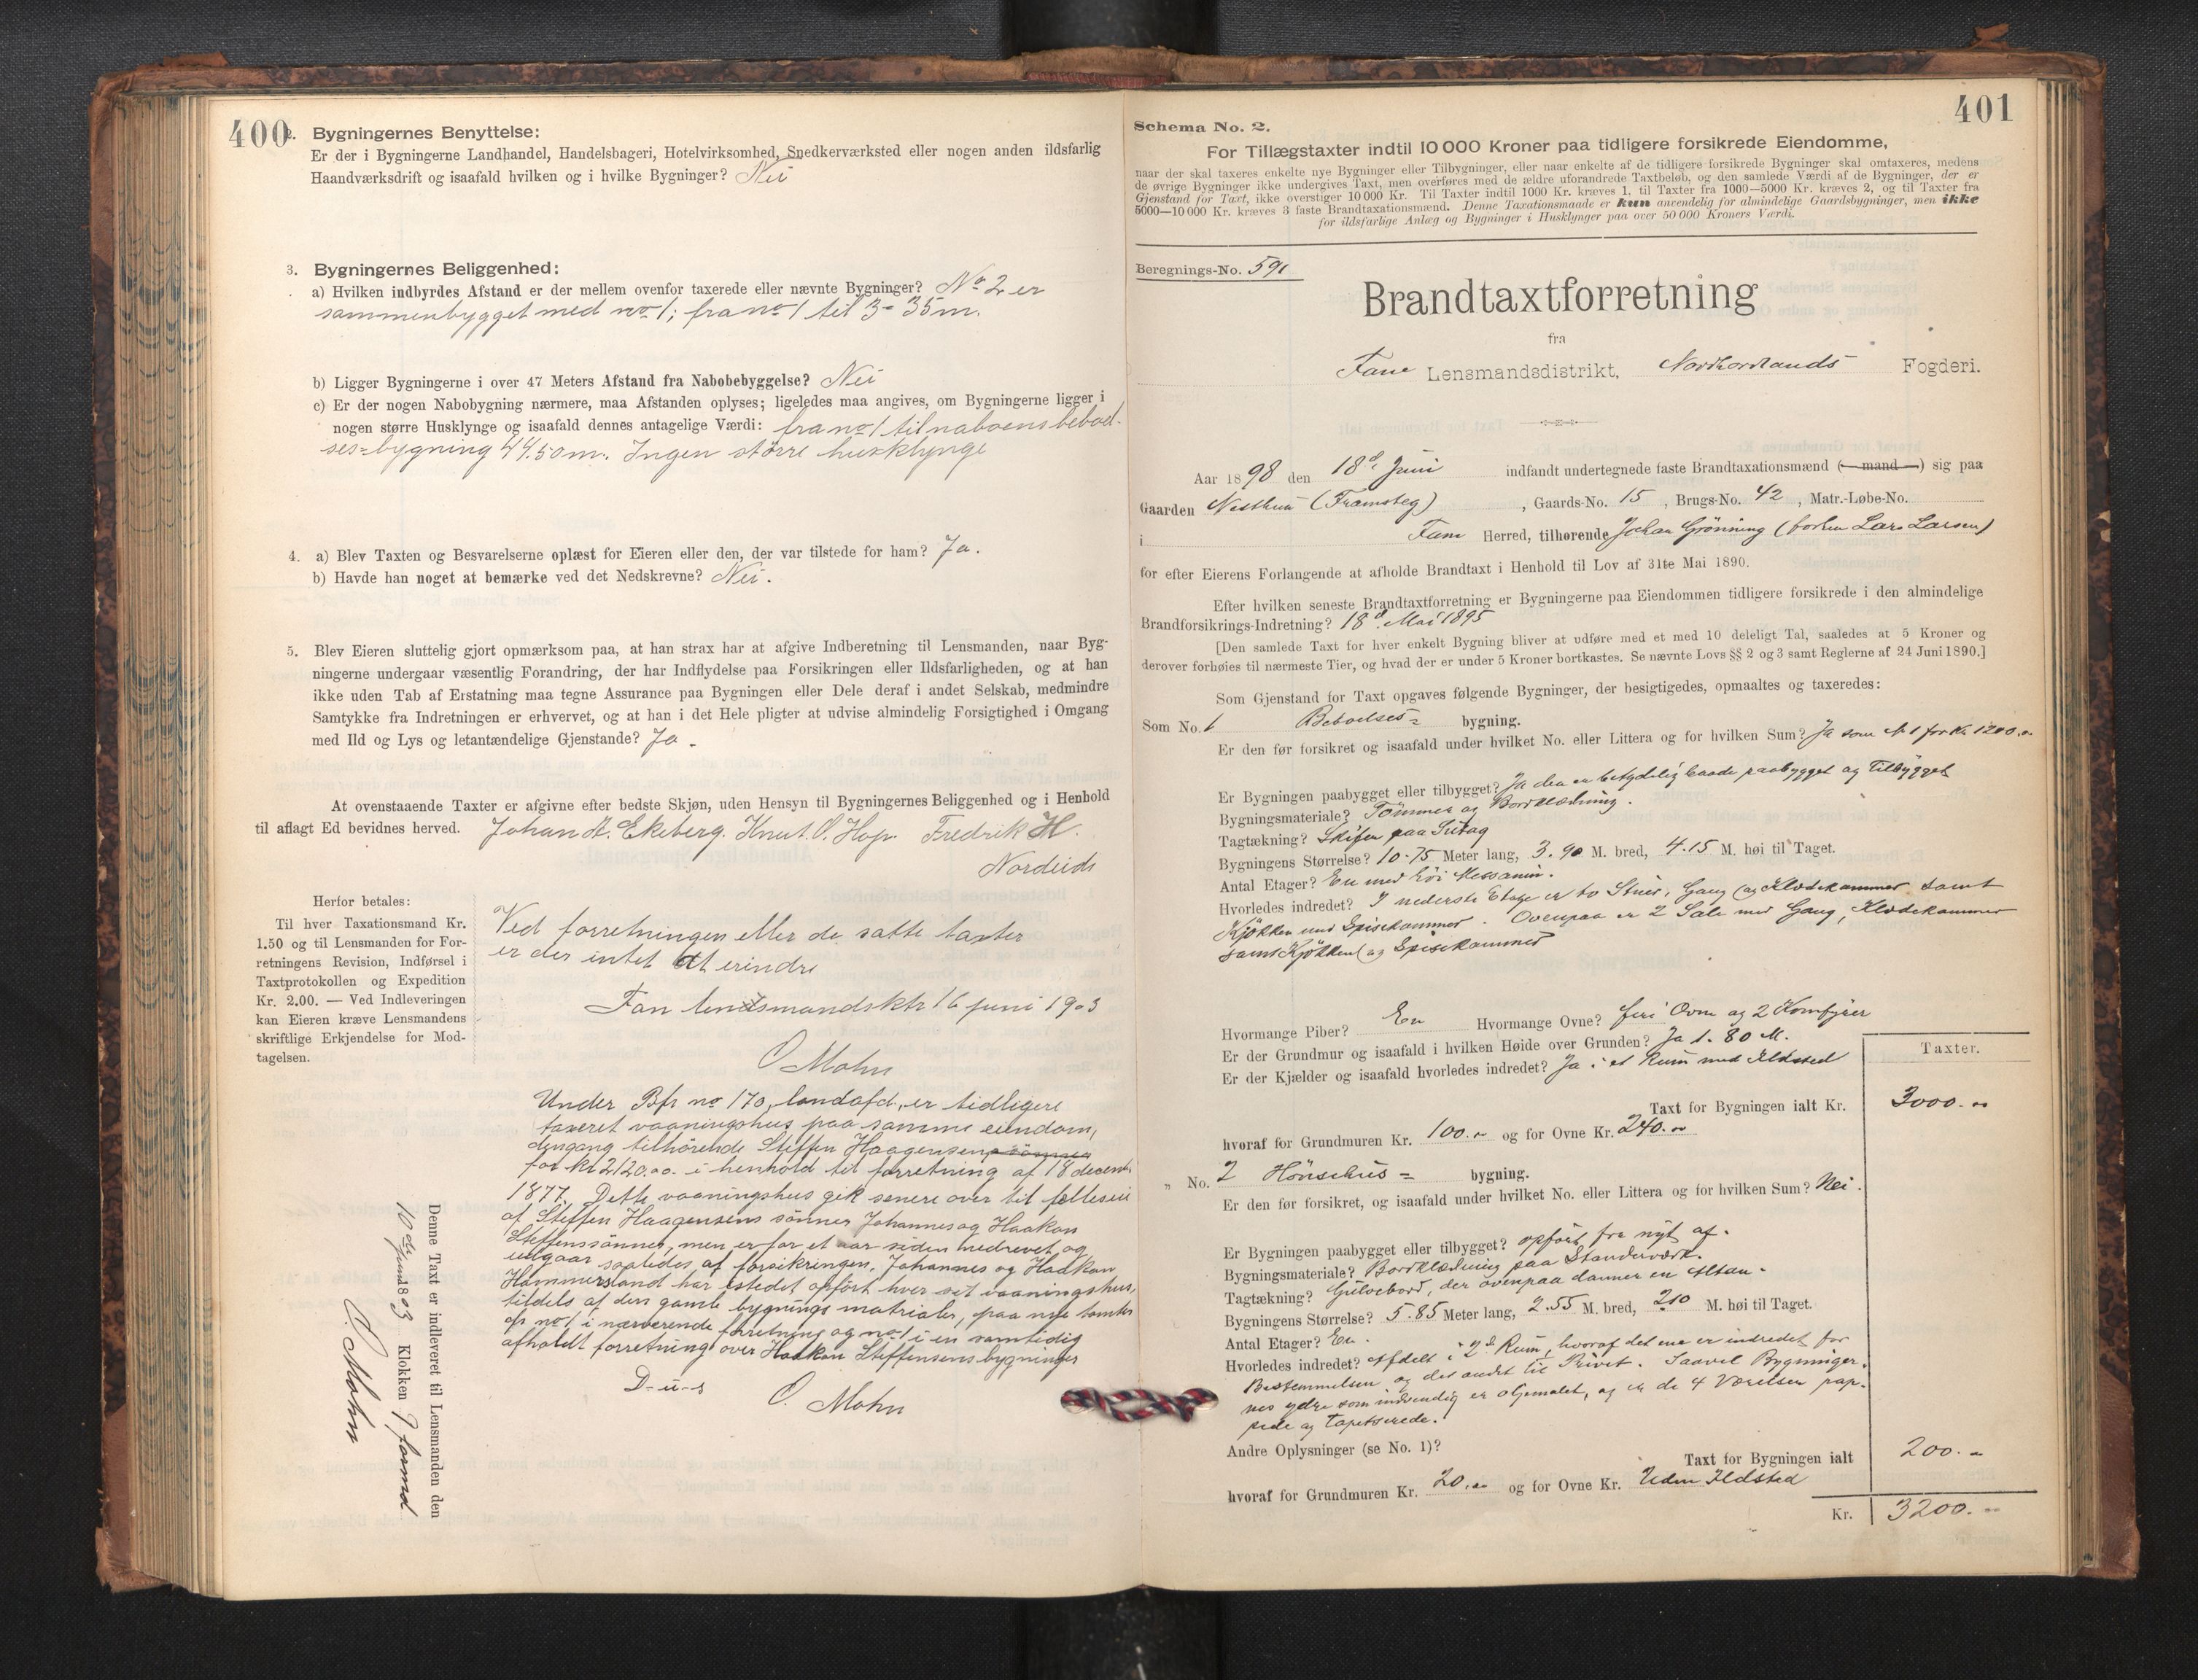 400
2. Bygningernes Benyttelse:
Er der i Bygningerne Landhandel, Handelsbageri, Hotelvirksomhed, Snedkerværksted eller nogen anden ildsfarlig
Haandværksdrift og isaafald hvilken og i hvilke Bygninger? Nei
3. Bygningernes Beliggenhed:
a) Hvilken indbyrdes Afstand er der mellem ovenfor taxerede eller nævnte Bygninger? No 2 er
sammenbygget med no 1; fra no 1 til 3 - 35 m.
b) Ligger Bygningerne i over 47 Meters Afstand fra Nabobebyggelse? Nei
c) Er der nogen Nabobygning nærmere, maa Afstanden oplyses; ligeledes maa angives, om Bygningerne ligger i
nogen større Husklynge og isaafald dennes antagelige Værdi: fra no 1 til naboens beboel-
ses=bygning 44.50 m. Ingen større husklynge
4. a) Blev Taxten og Besvarelserne oplæst for Eieren eller den, der var tilstede for ham? Ja.
b) Havde han noget at bemærke ved det Nedskrevne? Nei.
5. Blev Eieren sluttelig gjort opmærksom paa, at han strax har at afgive Indberetning til Lensmanden, naar Byg-
ningerne undergaar væsentlig Forandring, der har Indflydelse paa Forsikringen eller Ildsfarligheden, og at han
ikke uden Tab af Erstatning maa tegne Assurance paa Bygningen eller Dele deraf i andet Selskab, medmindre
Samtykke fra Indretningen er erhvervet, og at han i det Hele pligter at udvise almindelig Forsigtighed i Omgang
med Ild og Lys og letantændelige Gjenstande? Ja.
At ovenstaaende Taxter er afgivne efter bedste Skjøn, uden Hensyn til Bygningernes Beliggenhed og i Henhold
til aflagt Ed bevidnes herved. Johan A. Ekeberg. Knut O. Hop. Fredrik H.
Nordeids
Herfor betales:
Til hver Taxationsmand Kr.
1.50 og til Lensmanden for For-
retningens Revision, Indførsel i
Taxtprotokollen og Expedition
Kr. 2.00. — Ved Indleveringen
kan Eieren kræve Lensmandens
skriftlige Erkjendelse for Mod-
tagelsen.
Ved forretningen eller de satte taxter
er der intet at erindre
Fan lensmandsktr 16 juni 1903
O Mohn
Under Bfs no 170, landafd., er tidligere
taxeret vaaningshus paa samme eiendom,
dengang tilhörende Steffen Haagensen
for kr 2120.00 i henhold til forretning af 18 decemb.
1877. Dette vaaningshus gik senere over til fælleseie
af Steffen Haagensens sönner Johannes og Haakon
Steffenssönner, men er for et aar siden nedrevet og
udgaar saaledes af forsikringen. Johannes og Haakon
Hammersland har istedet opfört hver sit vaaningshus,
tildels af den gamle bygnings matrialer, paa nye tomter
cfr no 1 i nærværende forretning og no 1 i en samtidig
afholdt forretning over Haakon Steffensens bygninger
D-u-s
O. Mohn
Denne Taxt er indleveret til Lensmanden den
10de juni 1803 Klokken 9 formd
O. Mohn
401
Schema No. 2.
For Tillægstaxter indtil 10 000 Kroner paa tidligere forsikrede Eiendomme,
naar der skal taxeres enkelte nye Bygninger eller Tilbygninger, eller naar enkelte af de tidligere forsikrede Bygninger skal omtaxeres, medens
de øvrige Bygninger ikke undergives Taxt, men overføres med de ældre uforandrede Taxtbeløb, og den samlede Værdi af de Bygninger, der er
Gjenstand for Taxt, ikke overstiger 10 000 Kr. Til Taxter indtil 1000 Kr. kræves 1, til Taxter fra 1000—5000 Kr. kræves 2, og til Taxter fra
5000—10 000 Kr. kræves 3 faste Brandtaxationsmænd. Denne Taxationsmaade er kun anvendelig for almindelige Gaardsbygninger, men ikke
for ildsfarlige Anlæg og Bygninger i Husklynger paa over 50 000 Kroners Værdi.
Beregnings-No. 591
Brandtaxtforretning
fra
Fane Lensmandsdistrikt, Nordhordlands Fogderi.
Aar 1898 den 18d Juni indfandt undertegnede faste Brandtaxationsmænd (mand) sig paa
Gaarden Nesttun (Framsteg), Gaards-No. 15, Brugs-No. 42, Matr.-Løbe-No.
i Fane Herred, tilhørende Johan Grönning (forhen Lars Larsen)
for efter Eierens Forlangende at afholde Brandtaxt i Henhold til Lov af 31te Mai 1890.
Efter hvilken seneste Brandtaxtforretning er Bygningerne paa Eiendommen tidligere forsikrede i den almindelige
Brandforsikrings-Indretning? 18d Mai 1895
[Den samlede Taxt for hver enkelt Bygning bliver at udføre med et med 10 deleligt Tal, saaledes at 5 Kroner og
derover forhøies til nærmeste Tier, og hvad der er under 5 Kroner bortkastes. Se nævnte Lovs §§ 2 og 3 samt Reglerne af 24 Juni 1890.]
Som Gjenstand for Taxt opgaves følgende Bygninger, der besigtigedes, opmaaltes og taxeredes:
Som No. 1 Beboelses= bygning.
Er den før forsikret og isaafald under hvilket No. eller Littera og for hvilken Sum? Ja som N 1 for Kr. 1200,00
Er Bygningen paabygget eller tilbygget? Ja den er betydelig baade paabygget og Tilbygget
Bygningsmateriale? Tömmer og Bordklædning.
Tagtækning? Skifer paa Sutag
Bygningens Størrelse? 10.75 Meter lang, 3.90 M. bred, 4.15 M. høi til Taget.
Antal Etager? En med höi Messanin.
Hvorledes indredet? I nederste Etage er to Stuer, Gang og Klædekammer samt
Kjökken med Spisekammer. Ovenpaa er 2 Sale med Gang, Klædekammer
samt Kjökken og Spisekammer
Hvormange Piber? En Hvormange Ovne? fire Ovne og 2 Komfyrer
Er der Grundmur og isaafald i hvilken Høide over Grunden? Ja 1.80 M.
Er der Kjælder og isaafald hvorledes indredet? Ja i et Rum med Ildsted
Taxter.
Taxt for Bygningen ialt Kr. 3000.00
hvoraf for Grundmuren Kr. 100.00 og for Ovne Kr. 240.00
" No. 2 Hönsehus= bygning.
Er den før forsikret, og isaafald under hvilket No. eller Littera og for hvilken Sum? Nei.
Er Bygningen paabygget eller tilbygget? opført fra nyt af.
Bygningsmateriale? Bordklædning paa Standerværk.
Tagtækning? Gulvebord, der ovenpaa danner en Altan.
Bygningens Størrelse? 5.85 Meter lang, 2.55 M. bred, 210 M. høi til Taget.
Antal Etager? En.
Hvorledes indredet? Afdelt i 2d Rum, hvoraf det ene er indredet for
Bestemmelsen og det andet til Privet. Saavel Bygninger-
nes ydre som indvendig er oljemalet, og er de 4 Værelser pap-
pede og tapetserede.
Andre Oplysninger (se No. 1)?
Taxt for Bygningen ialt 200.-
hvoraf for Grundmuren Kr. 20.00 og for Ovne Kr. Uden Ildsted
Kr. 3200.-